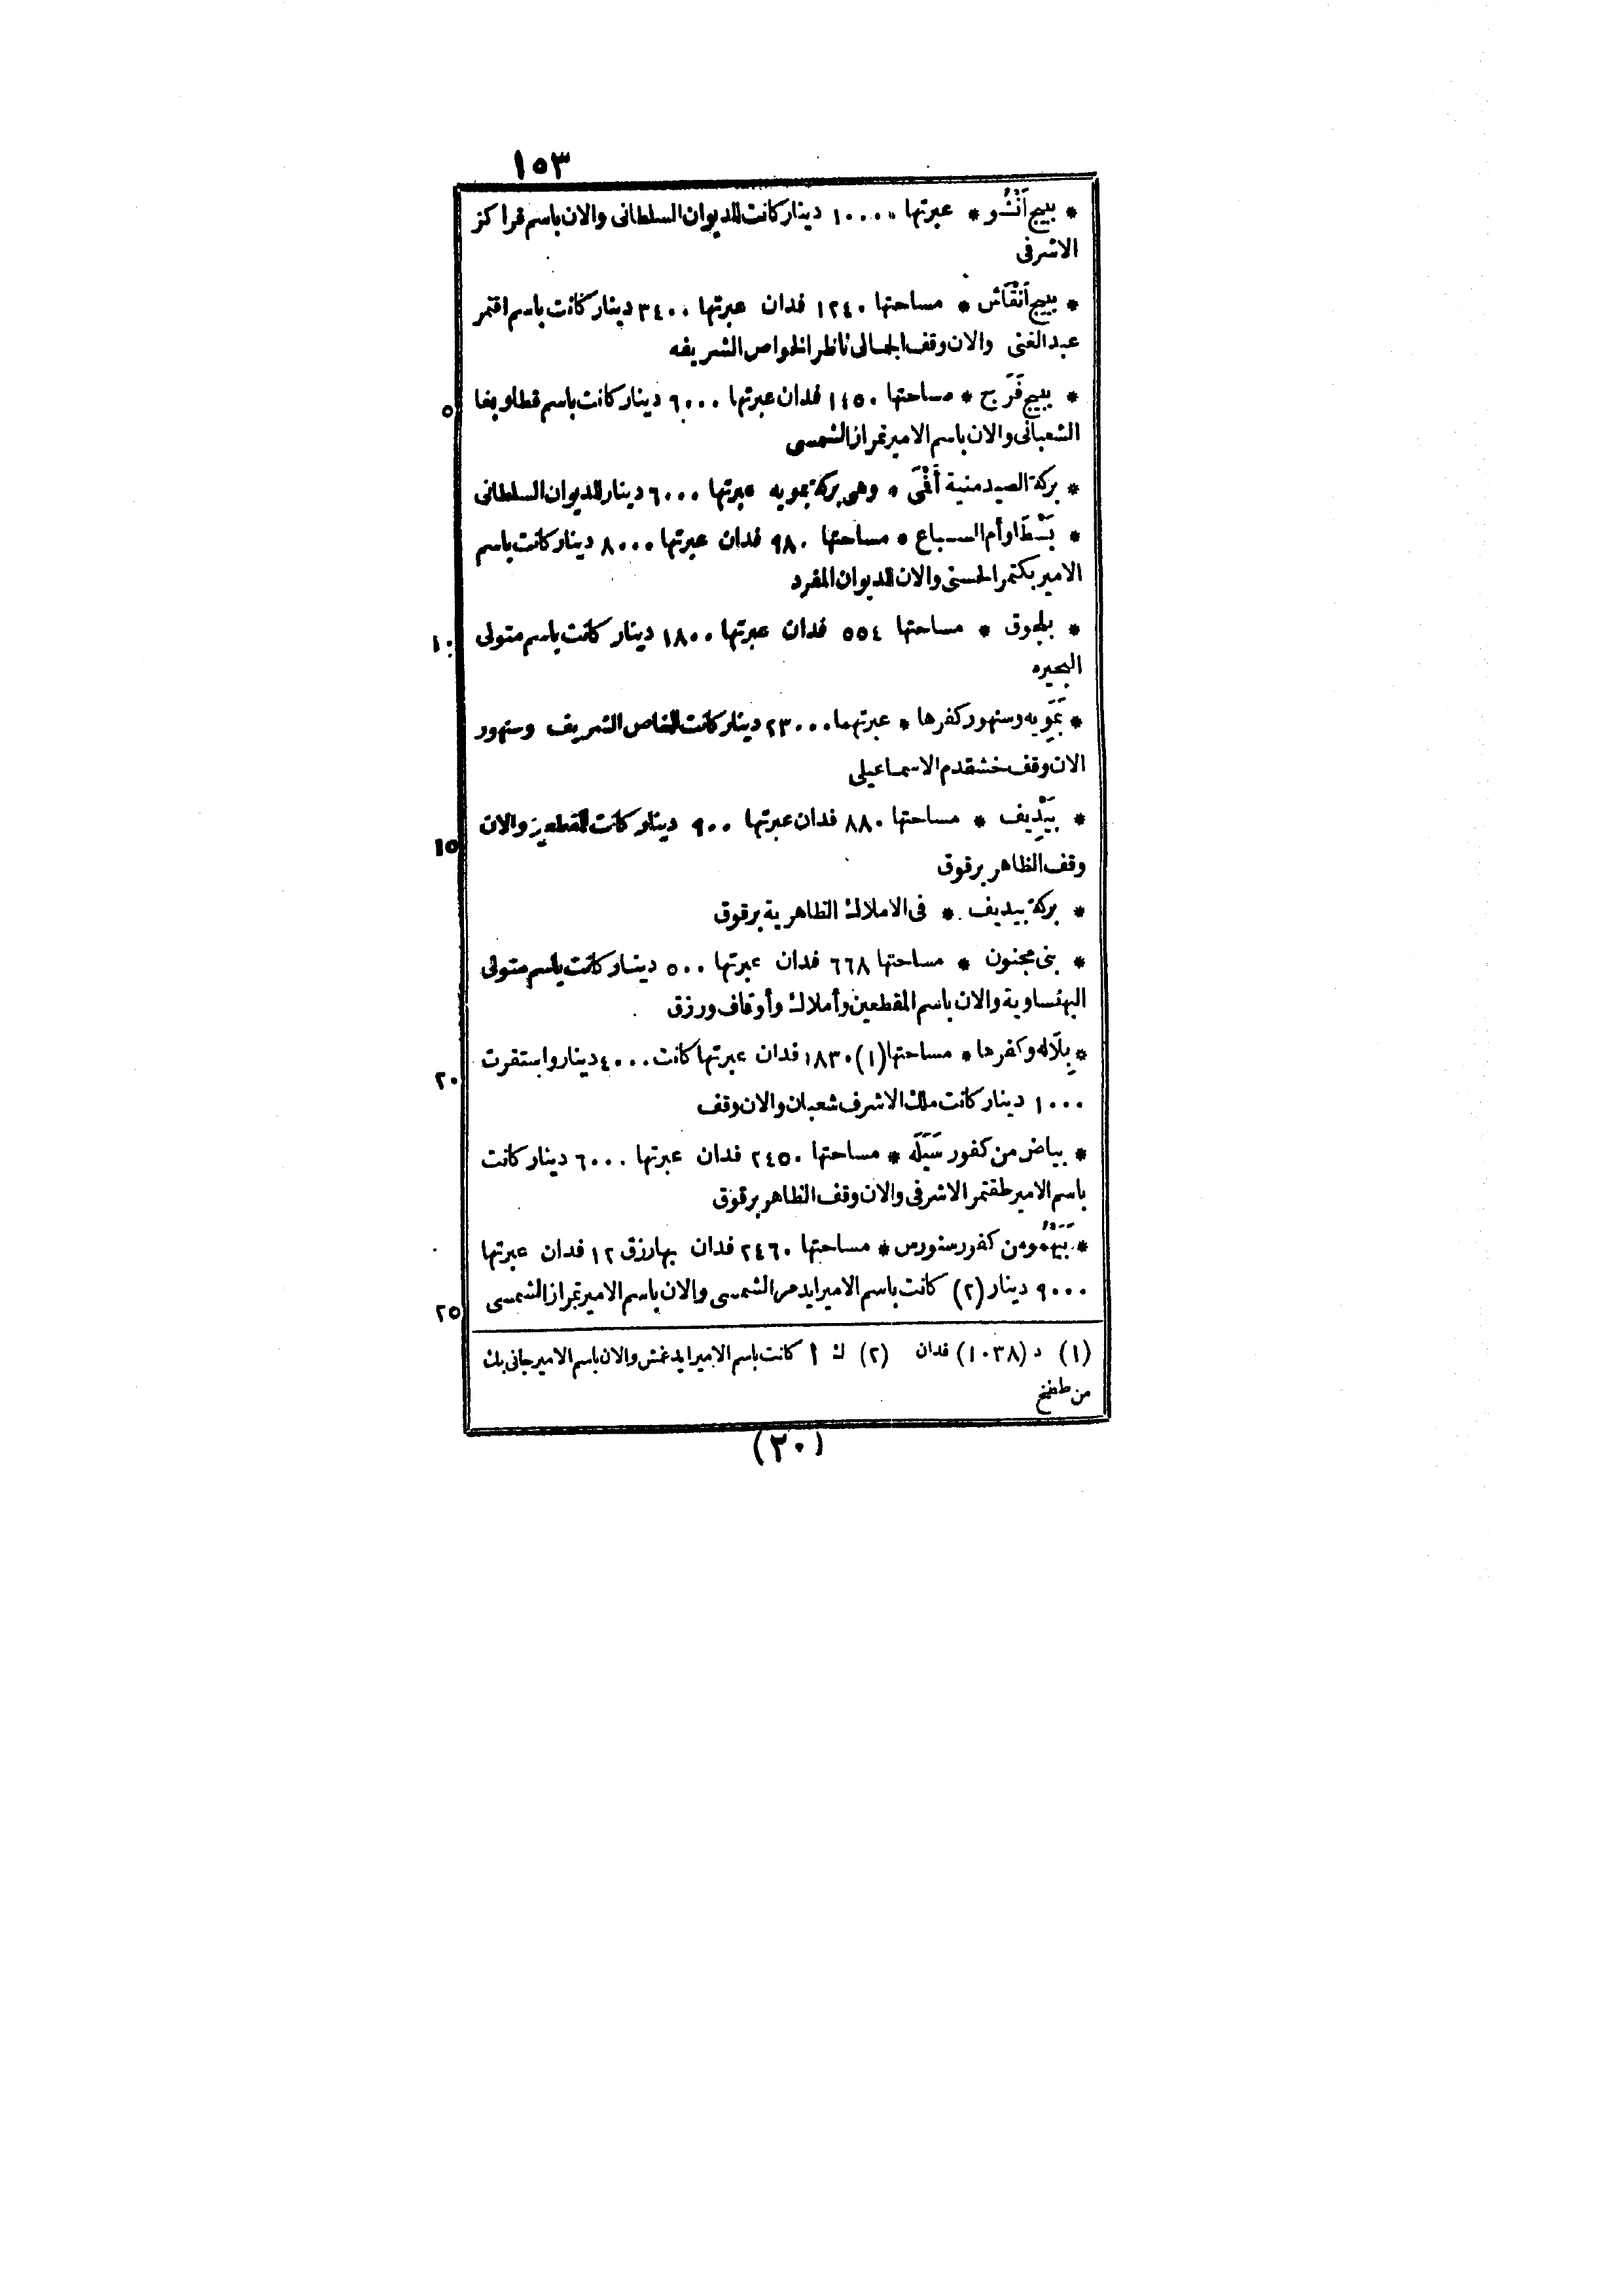 ١٥٣
* ببيج أَنْشُو * عبرتها ١٠٠٠٠ دينار كانت للديوان السلطانى والان باسم قراكز
الاشرفى
* ببيج أَنْقَاش * مساحتها ١٢٤٠ فدان عبرتها ٣٤٠٠ دينار كانت باسم اقتمر
عبد الغنى والان وقف الجمالى ناظر الخواص الشريفه
٥ * ببيج فَرَح * مساحتها ١٤٥٠ فدان عبرتها ٦٠٠٠ دينار كانت باسم قطلوبغا
الشعبانى والان باسم الامير تمراز الشمسى
* بركة الصيد منية أَقْنَى * وهى بركة بمويه عبرتها ٦٠٠٠ دينار للديوان السلطانى
* بَسْطَا وأم السباع * مساحتها ٩٨٠ فدان عبرتها ٨٠٠٠ دينار كانت باسم
الامير بكتمر الحسنى والان للديوان المفرد
١٠ * بلجوق * مساحتها ٥٥٤ فدان عبرتها ١٨٠٠ دينار كانت باسم متولى
البحيره
* بَمَوِيه وسنهور كفرها * عبرتهما ٢٣٠٠٠ دينار كانت للخاص الشريف وسنهور
الان وقف خشقدم الاسماعيلى
١٥ * بَيْدِيف * مساحتها ٨٨٠ فدان عبرتها ٩٠٠ دينار كانت لمقطعين والان
وقف الظاهر برقوق
* بركة بيديف * فى الاملاك الظاهرية برقوق
* بنى مجنون * مساحتها ٦٦٨ فدان عبرتها ٥٠٠ دينار كانت باسم متولى
البهنساوية والان باسم المقطعين وأملاك وأوقاف ورزق
٢٠ * بِلَاله وكفرها * مساحتها (١) ١٨٣٠ فدان عبرتها كانت ٤٠٠٠ دينار واستقرت
١٠٠٠ دينار كانت ملك الاشرف شعبان والان وقف
* بياض من كفور سَيَلَه * مساحتها ٢٤٥٠ فدان عبرتها ٦٠٠٠ دينار كانت
باسم الامير طقتمر الاشرفى والان وقف الظاهر برقوق
* بَيَهْمُو من كفور سنورس * مساحتها ٢٤٦٠ فدان بها رزق ١٢ فدان عبرتها
٢٥ ٩٠٠٠ دينار (٢) كانت باسم الامير ايدمر الشمسى والان باسم الامير تمراز الشمسى
(١) د (١٠٣٨) فدان (٢) ك أ كانت باسم الامير ايدغمش والان باسم الامير جانى بك
من ططخ
(٢٠)